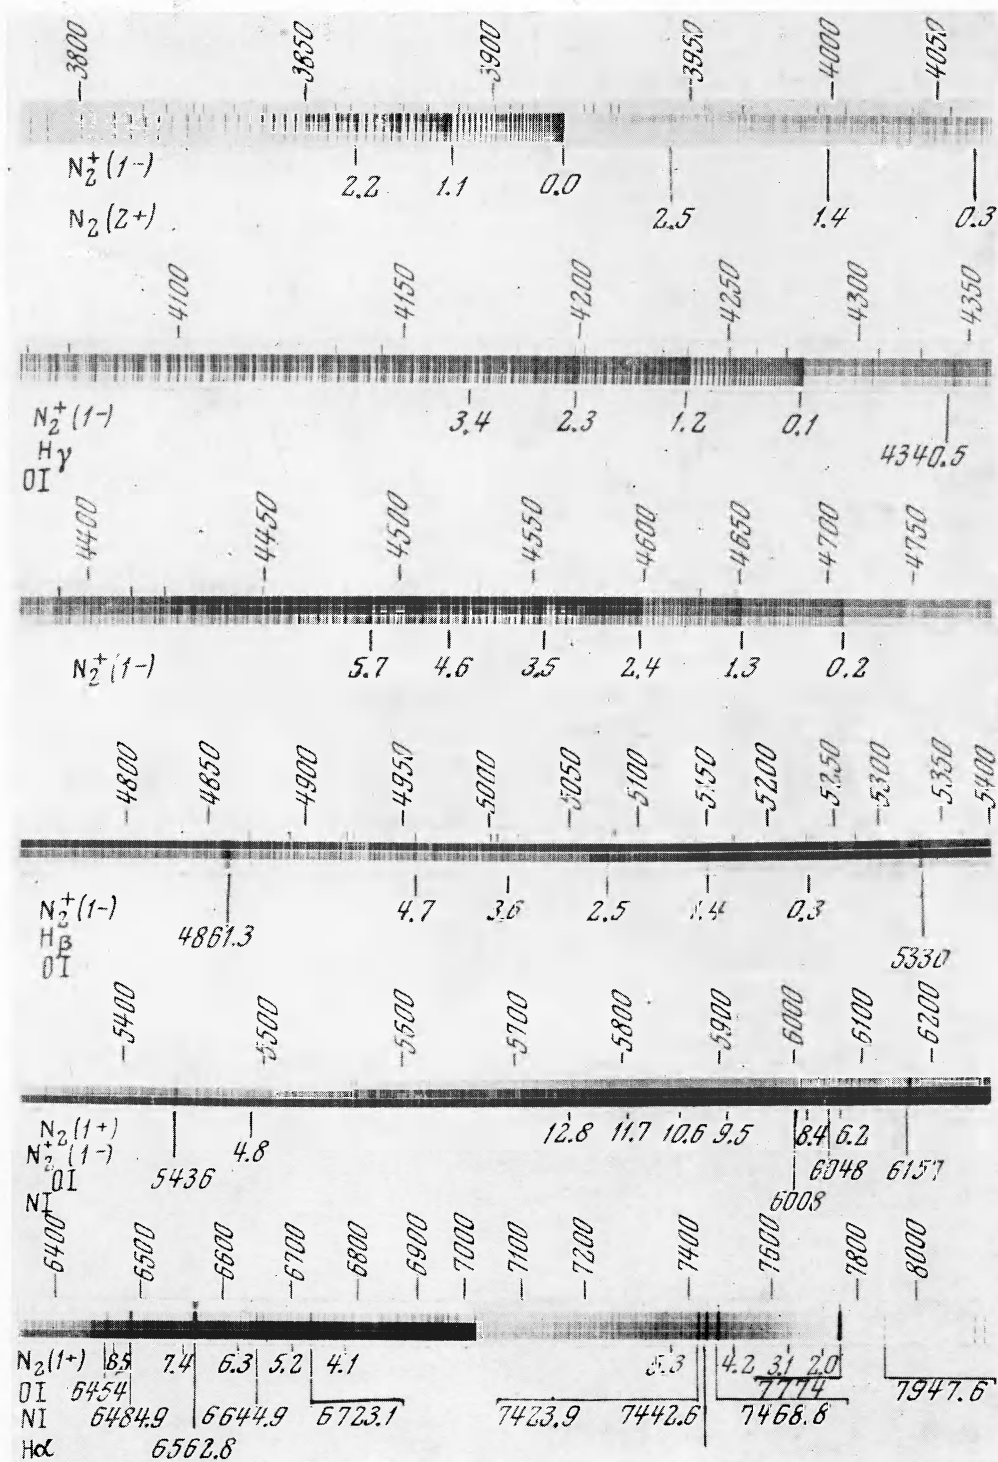 3800 3850 3900 3950 4000 4050
N₂⁺(1-) 2.2 1.1 0.0
N₂(2+) 2.5 1.4 0.3
4100 4150 4200 4250 4300 4350
N₂⁺(1-) 3.4 2.3 1.2 0.1
Hγ 4340.5
OI
4400 4450 4500 4550 4600 4650 4700 4750
N₂⁺(1-) 5.7 4.6 3.5 2.4 1.3 0.2
4800 4850 4900 4950 5000 5050 5100 5150 5200 5250 5300 5350 5400
N₂⁺(1-) 4.7 3.6 2.5 1.4 0.3
Hβ 4861.3
OI 5330
5400 5500 5600 5700 5800 5900 6000 6100 6200
N₂(1+) 12.8 11.7 10.6 9.5 8.4 6.2
N₂⁺(1-) 4.8
OI 5436 6048 6157
NI 6008
6400 6500 6600 6700 6800 6900 7000 7100 7200 7400 7600 7800 8000
N₂(1+) 8.5 7.4 6.3 5.2 4.1 5.3 4.2 3.1 2.0
OI 6454 7774 7947.6
NI 6484.9 6644.9 6723.1 7423.9 7442.6 7468.8
Hα 6562.8